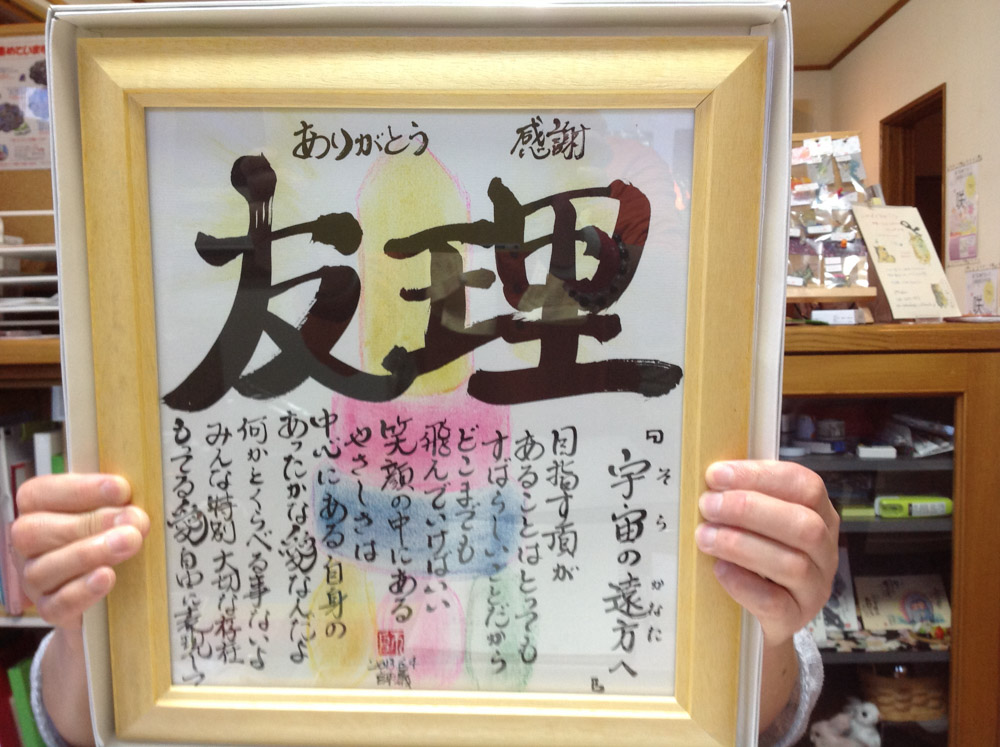 ありがとう 感謝
友理
『宇宙の遠方へ』
そら かなた
目指す頂が
あることはとっても
すばらしいことだから
どこまでも
飛んでいけばいい
笑顔の中にある
やさしさは
中心にある自身の
あったかな愛なんだよ
何かとくらべる事ないよ
みんな特別 大切な存在
もってる愛 自由に表現して